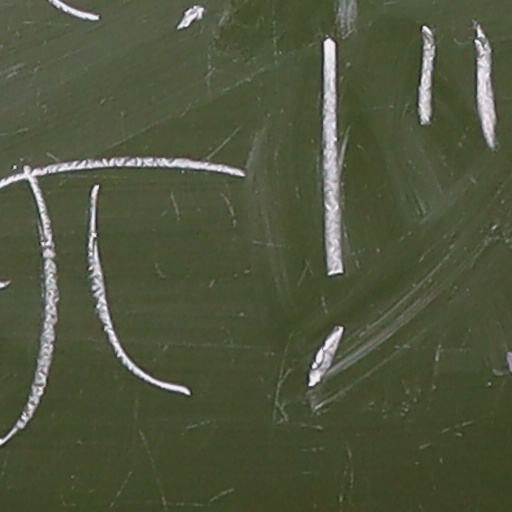 π!"